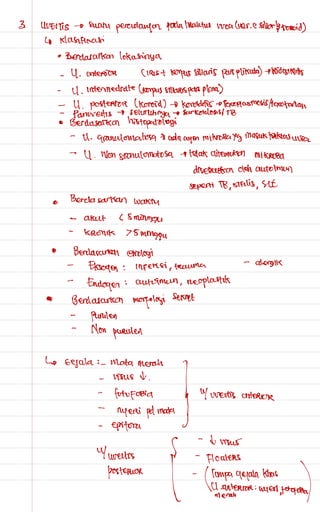 3 UVEITIS → suatu peradangan pada traktus uvea (
↳ Klasifikasi
• Berdasarkan lokasinya
- U. anterior (iris + korpus siliaris pars plikata) →
- U. intermediate (korpus siliaris pars plana)
- U. posterior (koroid) →
- Panuveitis → seluruhnya → sarkoidosis/TB
• Berdasarkan histopatologi
- U. granulomatosa → ada agen mikroba yg masuk
- U. Non granulomatosa → tidak ditemukan mikroba
disebabkan oleh autoimun
seperti TB, sifilis, SLE
• Berdasarkan waktu
- akut < 5 minggu
- kronik > 5 minggu
• Berdasarkan etiologi
- Eksogen : infeksi, trauma - alergik
- Endogen : autoimun, neoplastik
• Berdasarkan morfologi
- Purulen
- Non purulen
↳ Gejala : - Mata merah
- visus ↓.
- fotofobia
- nyeri pd mata
- epifora
u/ uveitis anterior
u/ uveitis posterior
- ↓ visus
- Floaters
- Tanpa gejala khas
(U. anterior : nyeri,
merah